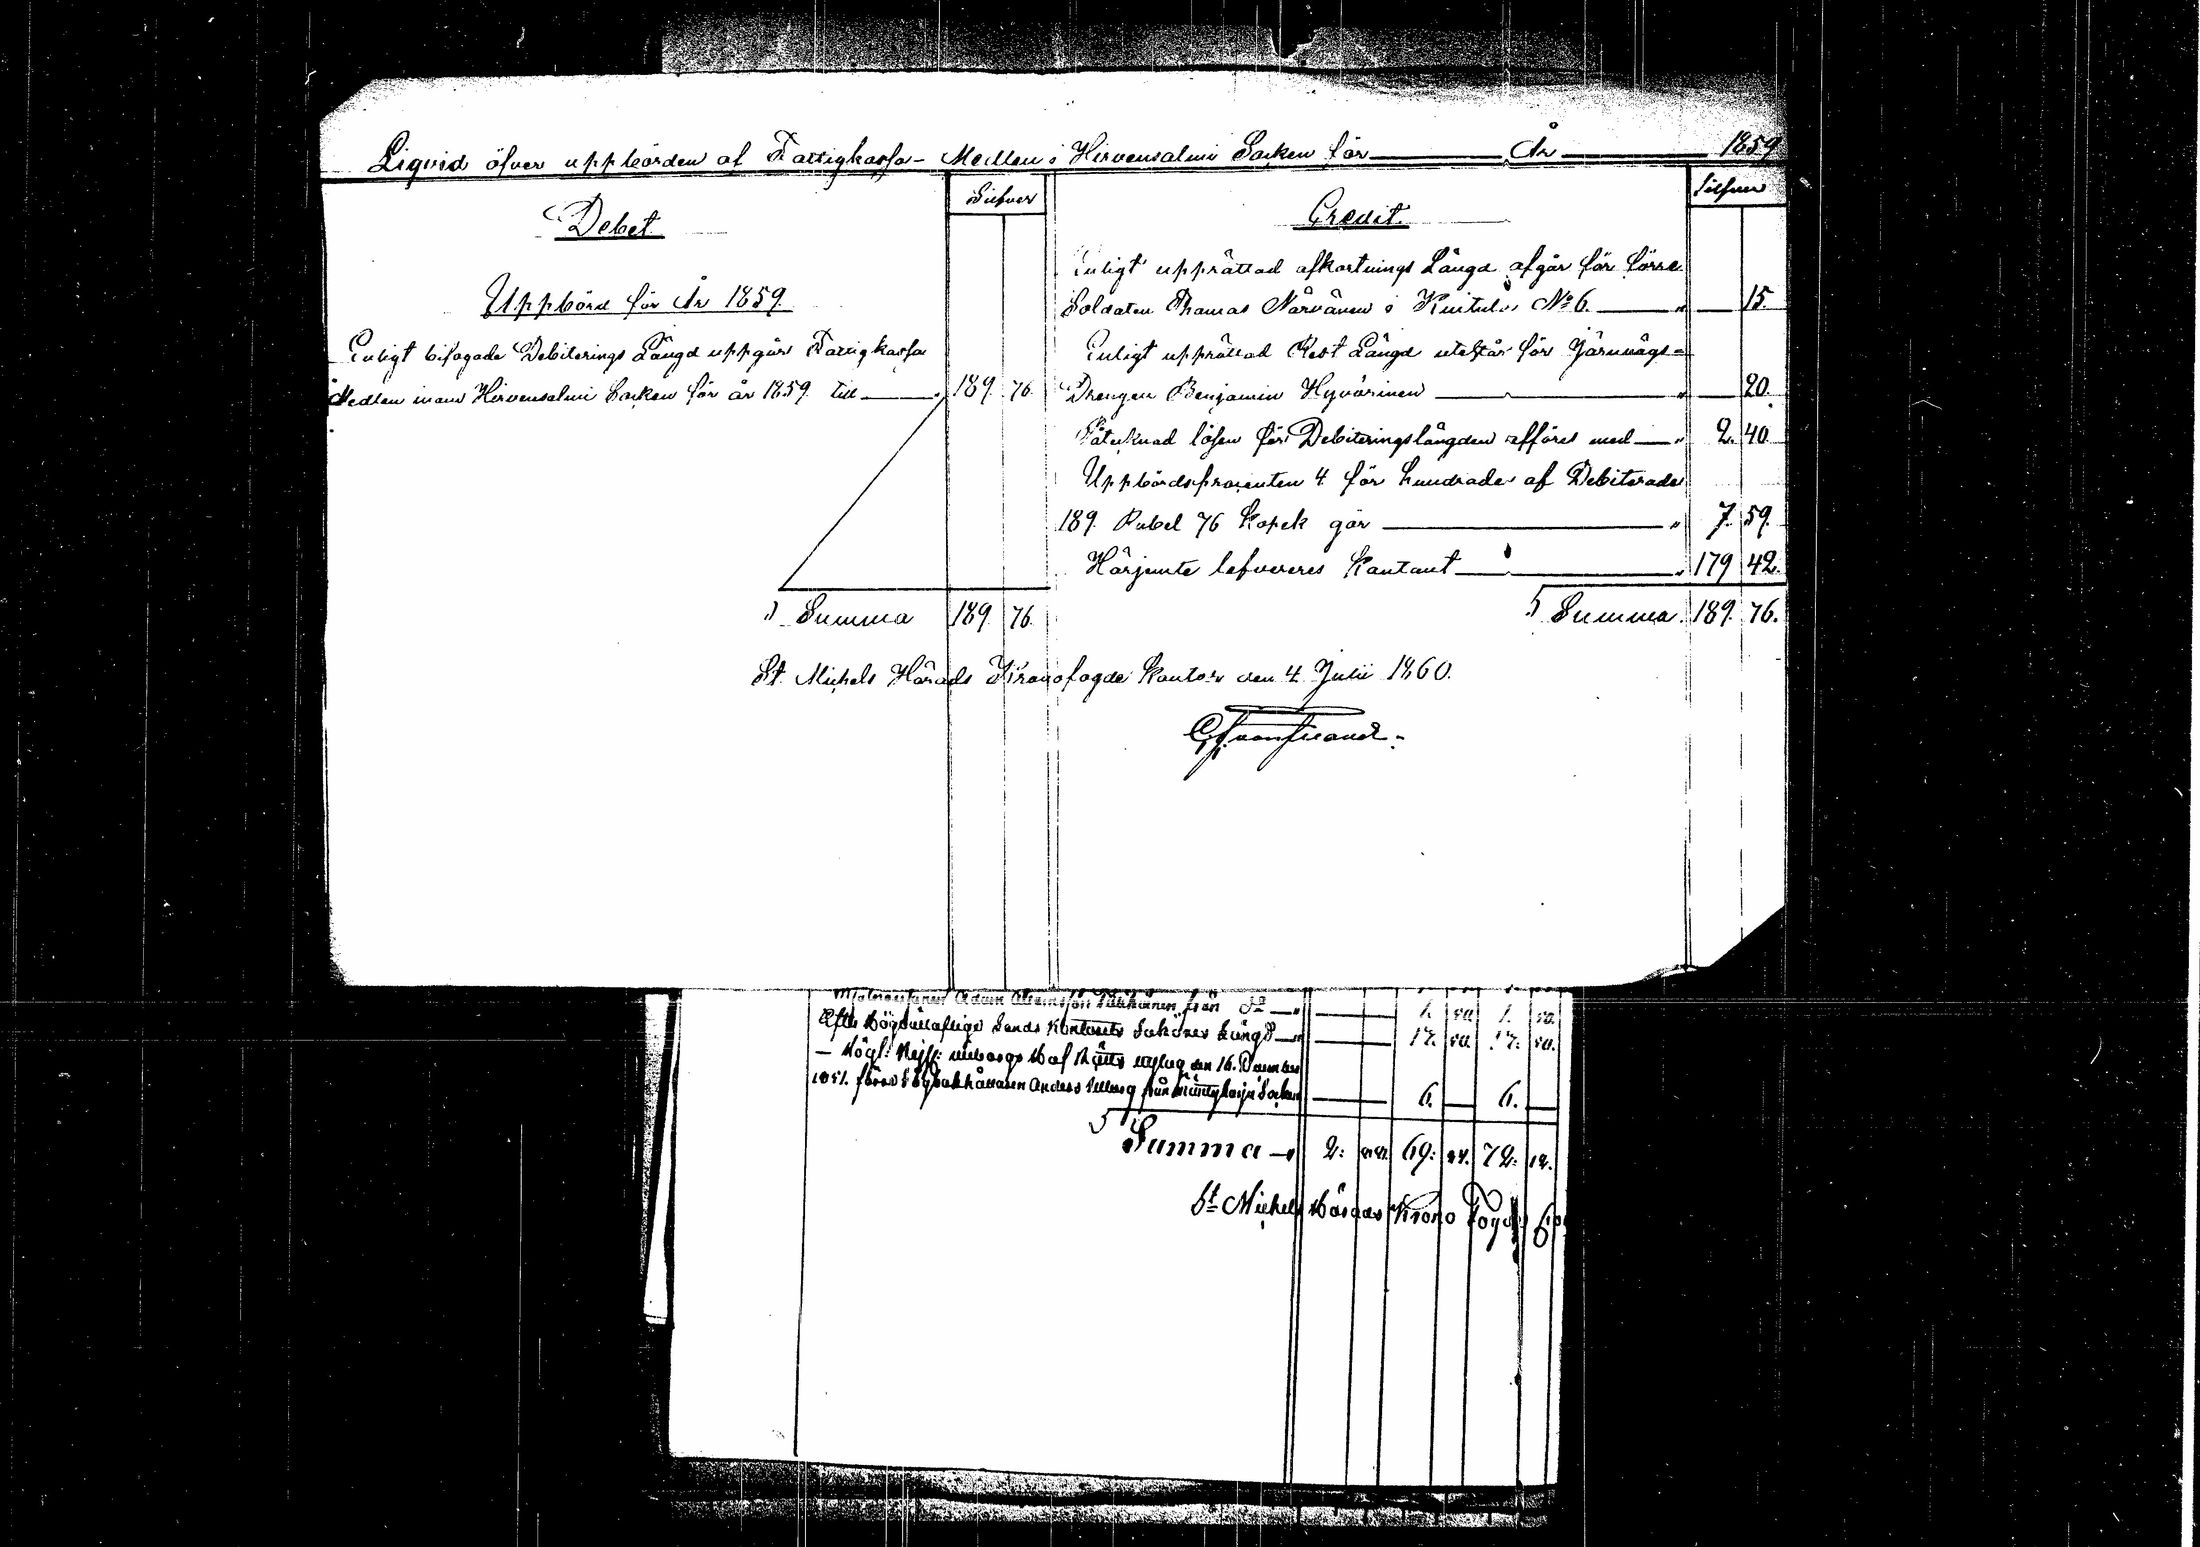 Liqvid öfver uppbörden af Fattigkassa- Medlen i Hirvensalmi Socken för År 1859
Debet
Silfver
Uppbörd för År 1859.
Enligt bifogade Debiterings Längd uppgår Fattigkassa
Medlen inom Hirvensalmi Socken för år 1859 till 189. 76.
Summa 189. 76.
Credit.
Silfver
Enligt upprättad afkortnings Längd afgår för förre
Soldaten Thomas Närvänen i Kuitula No 6. " 15.
Enligt upprättad Rest Längd utestår för Järnvägs-
Drengen Benjamin Hyvärinen " 20.
Påteknad lösen för Debiteringslängden afföres med " 2. 40.
Uppbördsprocenten 4 för hundrade af Debiterade
189. Rubel 76 Kopek gör " 7. 59.
Härjemte lefvereres Kontant " 179 42.
Summa 189. 76.
St. Michels Härads Kronofogde Kontor den 4 Julii 1860.
Adam från Do 1. 50. 1. 50.
Efter Lands Kontorets Sakören Längd 17. 50. 17. 50.
Högl. Kejs: Wiborgs Hof Rätts utslag den 16. December
1851. förre Anders från Socken 6. 6.
Summa 2: 69: 72: 12.
St Michels Härads Krono Fogde